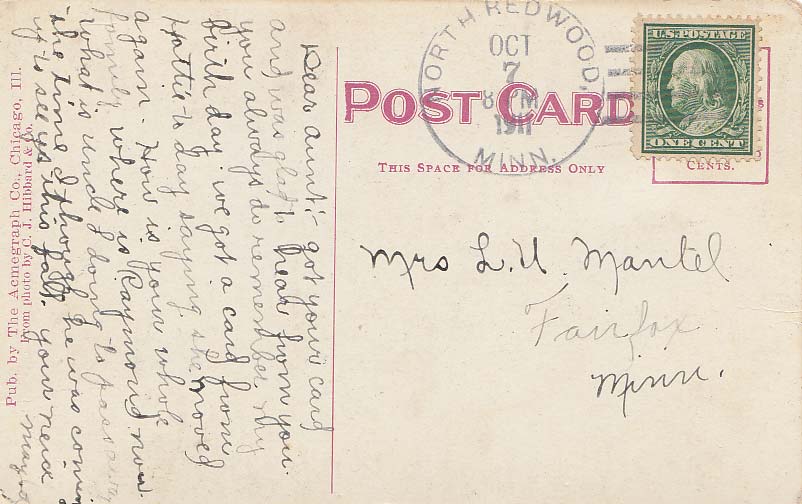 NORTH REDWOOD,
OCT
7
8 M
1911
MINN.
U.S. POSTAGE
ONE CENT
POST CARD
THIS SPACE FOR ADDRESS ONLY
CENTS.
Mrs L. U. Mantel
Fairfox
Minn.
Dear aunt:- got your card
and was glad to hear from you.
you always do remember my
birth day. we got a card from
Hattie to day saying she moved
again. How is your whole
family where is Raymond now
what is uncle L doing to pass away
the time I though he was coming
up to see us this fall. your neice
May
Pub. by The Acmegraph Co., Chicago, Ill.
From photo by C. J. Hibbard & Co.